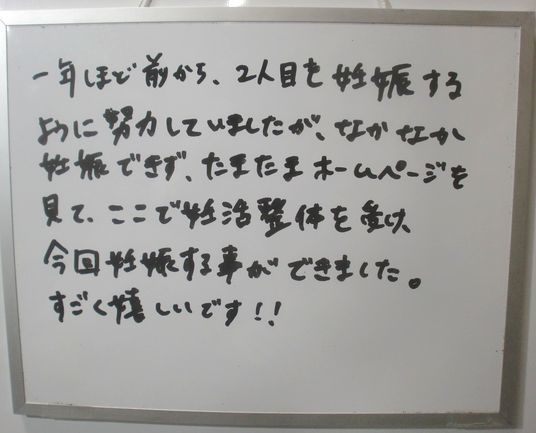 一年ほど前から、2人目を妊娠する
ように努力していましたが、なかなか
妊娠できず、たまたまホームページを
見て、ここで妊活整体を受け、
今回妊娠する事ができました。
すごく嬉しいです!!